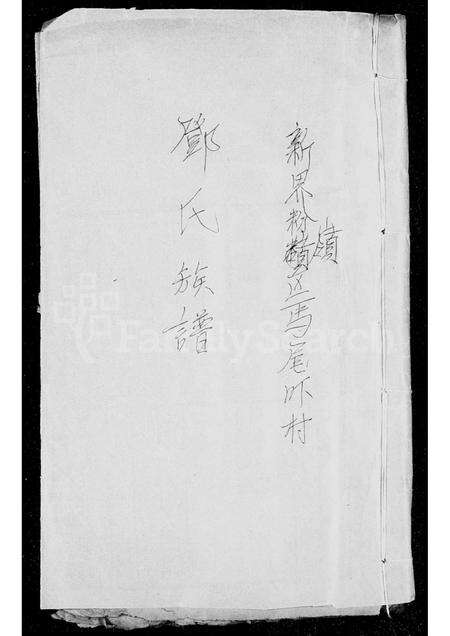 新界粉嶺区馬尾吓村
鄧氏族譜
FamilySearch